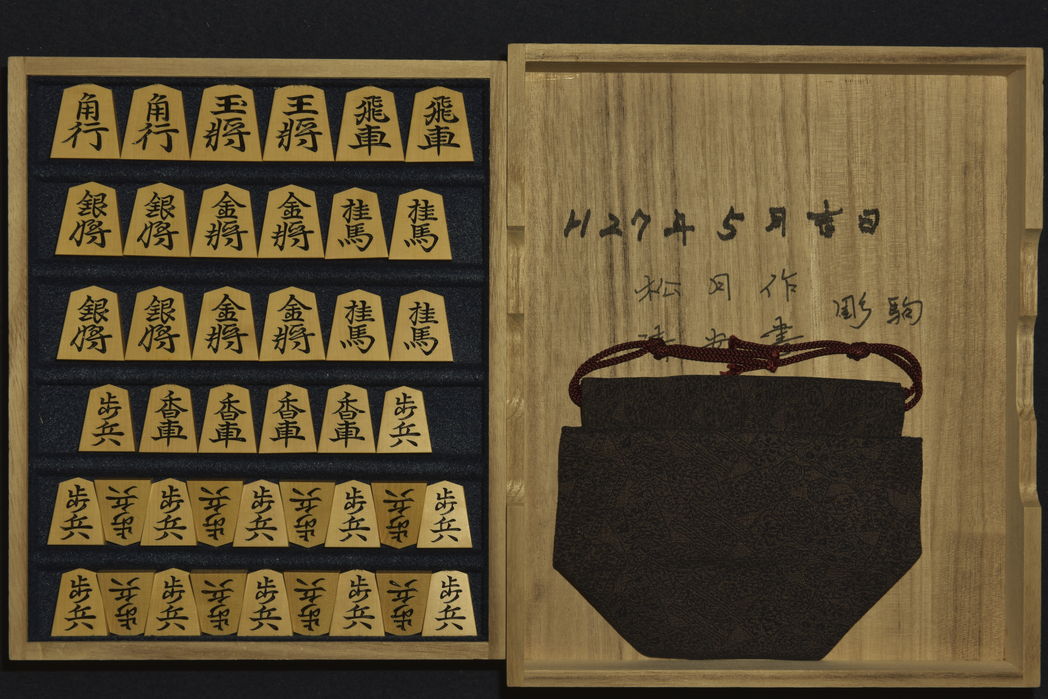 角行 角行 玉將 王將 飛車 飛車
銀將 銀將 金將 金將 桂馬 桂馬
銀將 銀將 金將 金將 桂馬 桂馬
歩兵 香車 香車 香車 香車 歩兵
歩兵 歩兵 歩兵 歩兵 歩兵 歩兵 歩兵 歩兵 歩兵
歩兵 歩兵 歩兵 歩兵 歩兵 歩兵 歩兵 歩兵 歩兵
H27年5月吉日
松月作 彫駒
書